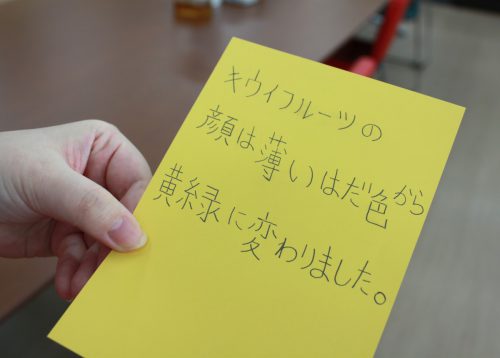 キウイフルーツの
顔は薄いはだ色から
黄緑に変わりました。